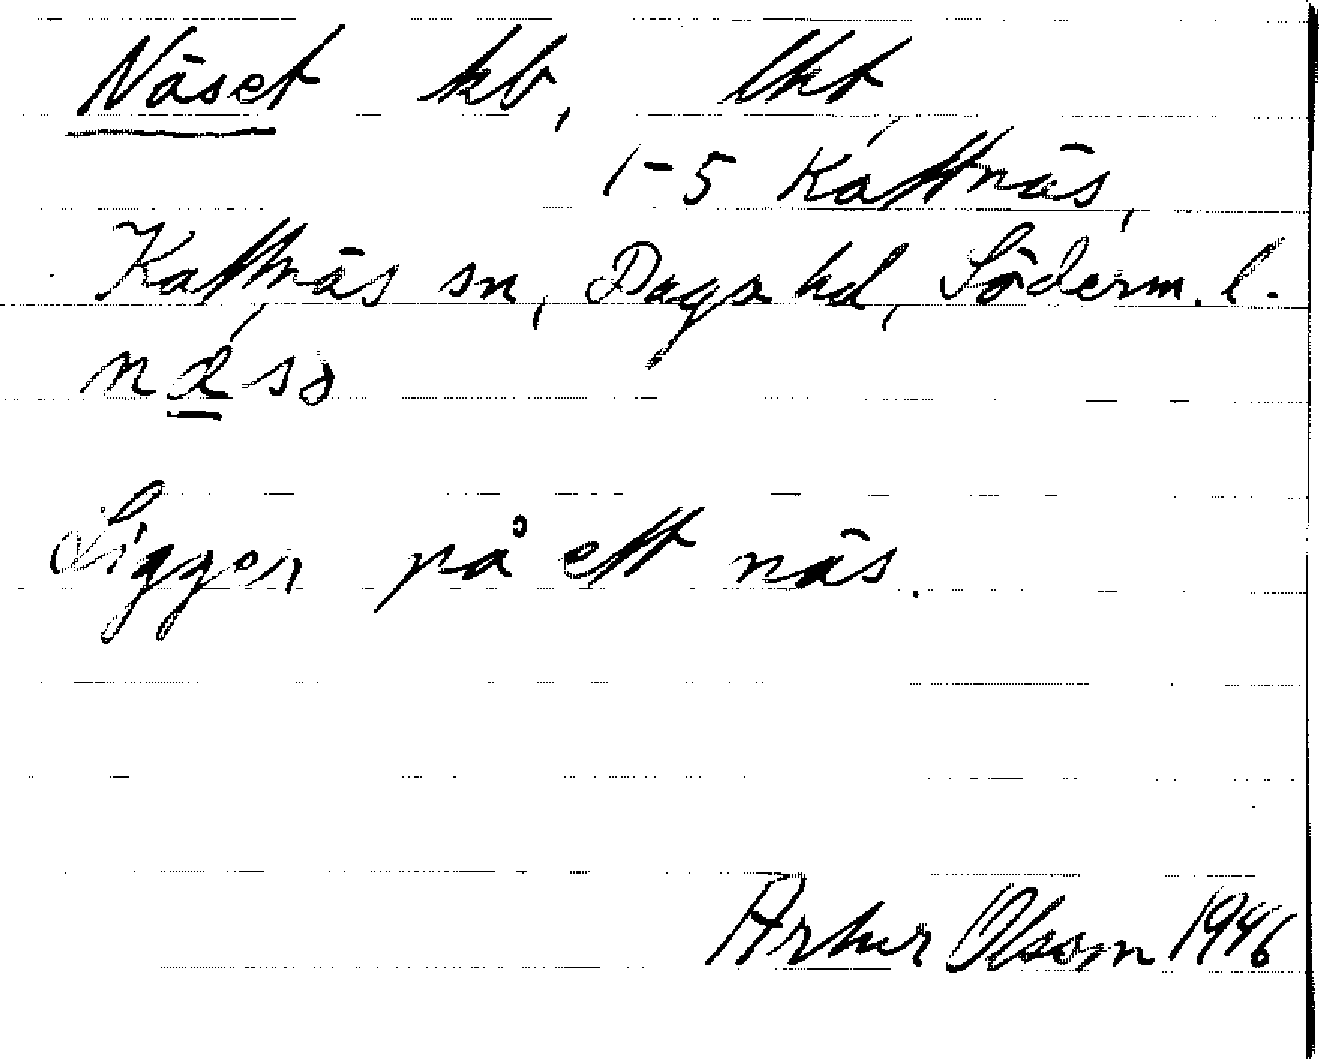 Näset hb, lht
1-5 Kattnäs,
Kattnäs sn, Daga hd, Söderm. l.
Ligger på ett näs.
Artur Olsson 1946